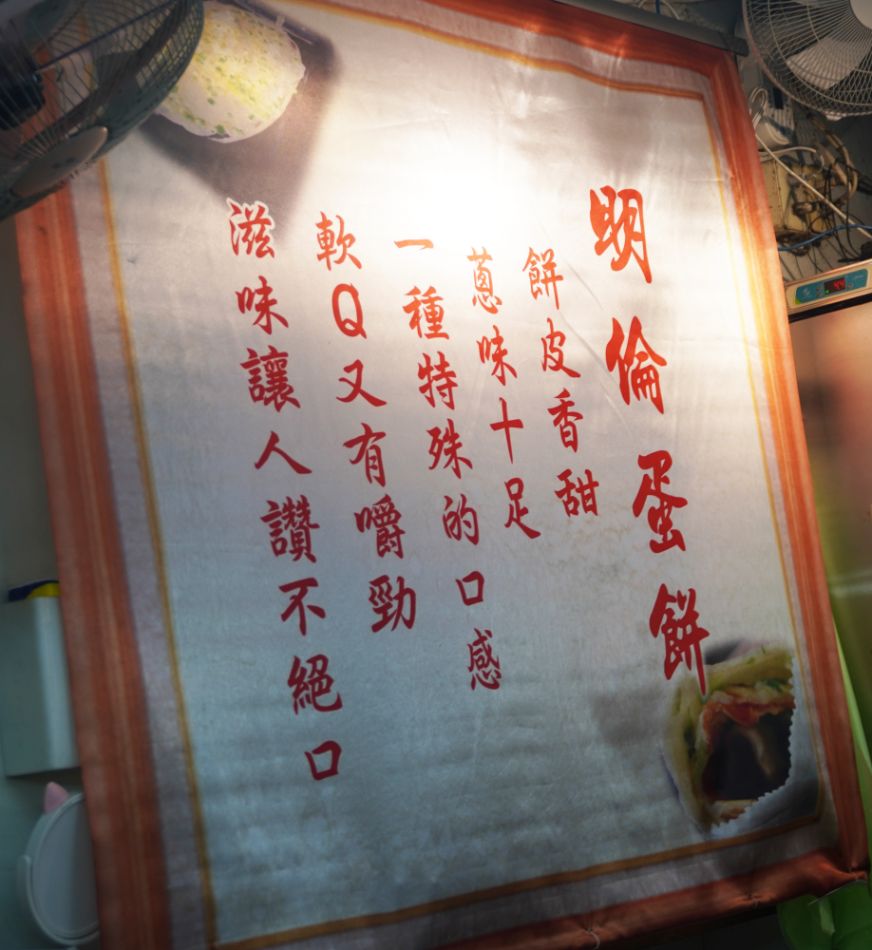 明倫蛋餅
餅皮香甜
蔥味十足
一種特殊的口感
軟Q又有嚼勁
滋味讓人讚不絕口